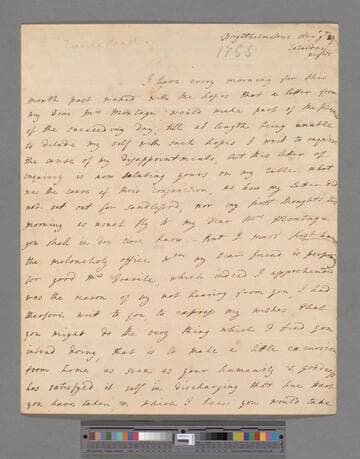 Brighthelmstone Aug ye 29
1755
Saturday
night
I have every morning for this
month past waked with the hopes that a letter from
my dear Mrs Montagu would make part of the
of the succeeding day, till at length being unable
to delude my self with such hopes I writ to enquire
the cause of my disappointments, but this letter of
inquiry is now saluting yours on my table. what
was the cause of their conjunction, as how my letter did
not set out for Sandleford, nor my first thoughts this
morning as usual fly to my dear Mrs Montagu
you shall in due time know. But I must first
the melancholy office wch my dear friend is
for good Mrs which indeed I apprehended
was the reason of my not hearing from you, I had
therefore writ to you to express my wishes that
you might do the very thing which I find you
intend doing, that is to make a little excursion
from home as soon as your humanity & goodness
has satisfyed it self in discharging that kind
you have taken, & which I knew you would take